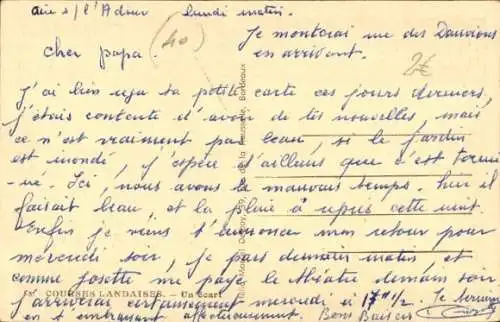 Aire s/ l'Adour lundi matin.
Je monterai rue des
en arrivant.
cher papa. (40)
2€
J'ai bien reçu ta petite carte ces jours derniers,
j'étais contente d'avoir de tes nouvelles, mais
ce n'est vraiment pas beau, si le jardin
est inondé, j'espère d'ailleurs que c'est termi-
-né. Ici, nous avons le mauvais temps. hier il
faisait beau, et la pluie a repris cette nuit.
Enfin je viens t'annoncer mon retour pour
mercredi soir, je pars demain matin et
comme Josette me paye le théâtre demain soir
COURSES LANDAISES. - Un Écart
j'arriverai certainement mercredi à 17h 1/2. Je termine
en t'embrassant affectueusement. Bons Baisers
Bordeaux